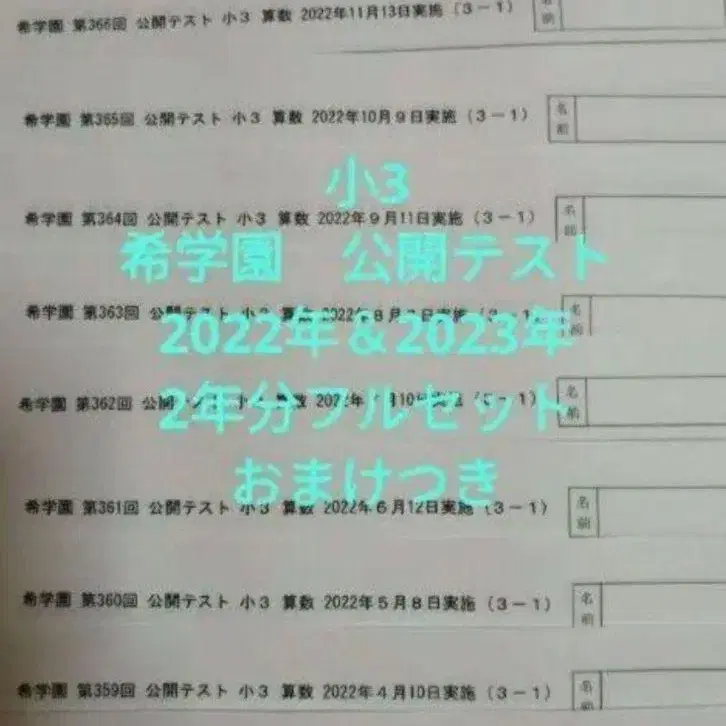 希学園 第366回 公開テスト 小3 算数 2022年11月13日実施 (3-1)
名前
希学園 第365回 公開テスト 小3 算数 2022年10月9日実施 (3-1)
名前
小3
希学園 第364回 公開テスト 小3 算数 2022年9月11日実施 (3-1)
名前
希学園 公開テスト
希学園 第363回 公開テスト 小3 算数 2022年8月 日実施 (3-1)
名前
2022年&2023年
希学園 第362回 公開テスト 小3 算数 2022年 月10日実施 (3-1)
名前
2年分フルセット
おまけつき
希学園 第361回 公開テスト 小3 算数 2022年6月12日実施 (3-1)
名前
希学園 第360回 公開テスト 小3 算数 2022年5月8日実施 (3-1)
名前
希学園 第359回 公開テスト 小3 算数 2022年4月10日実施 (3-1)
名前